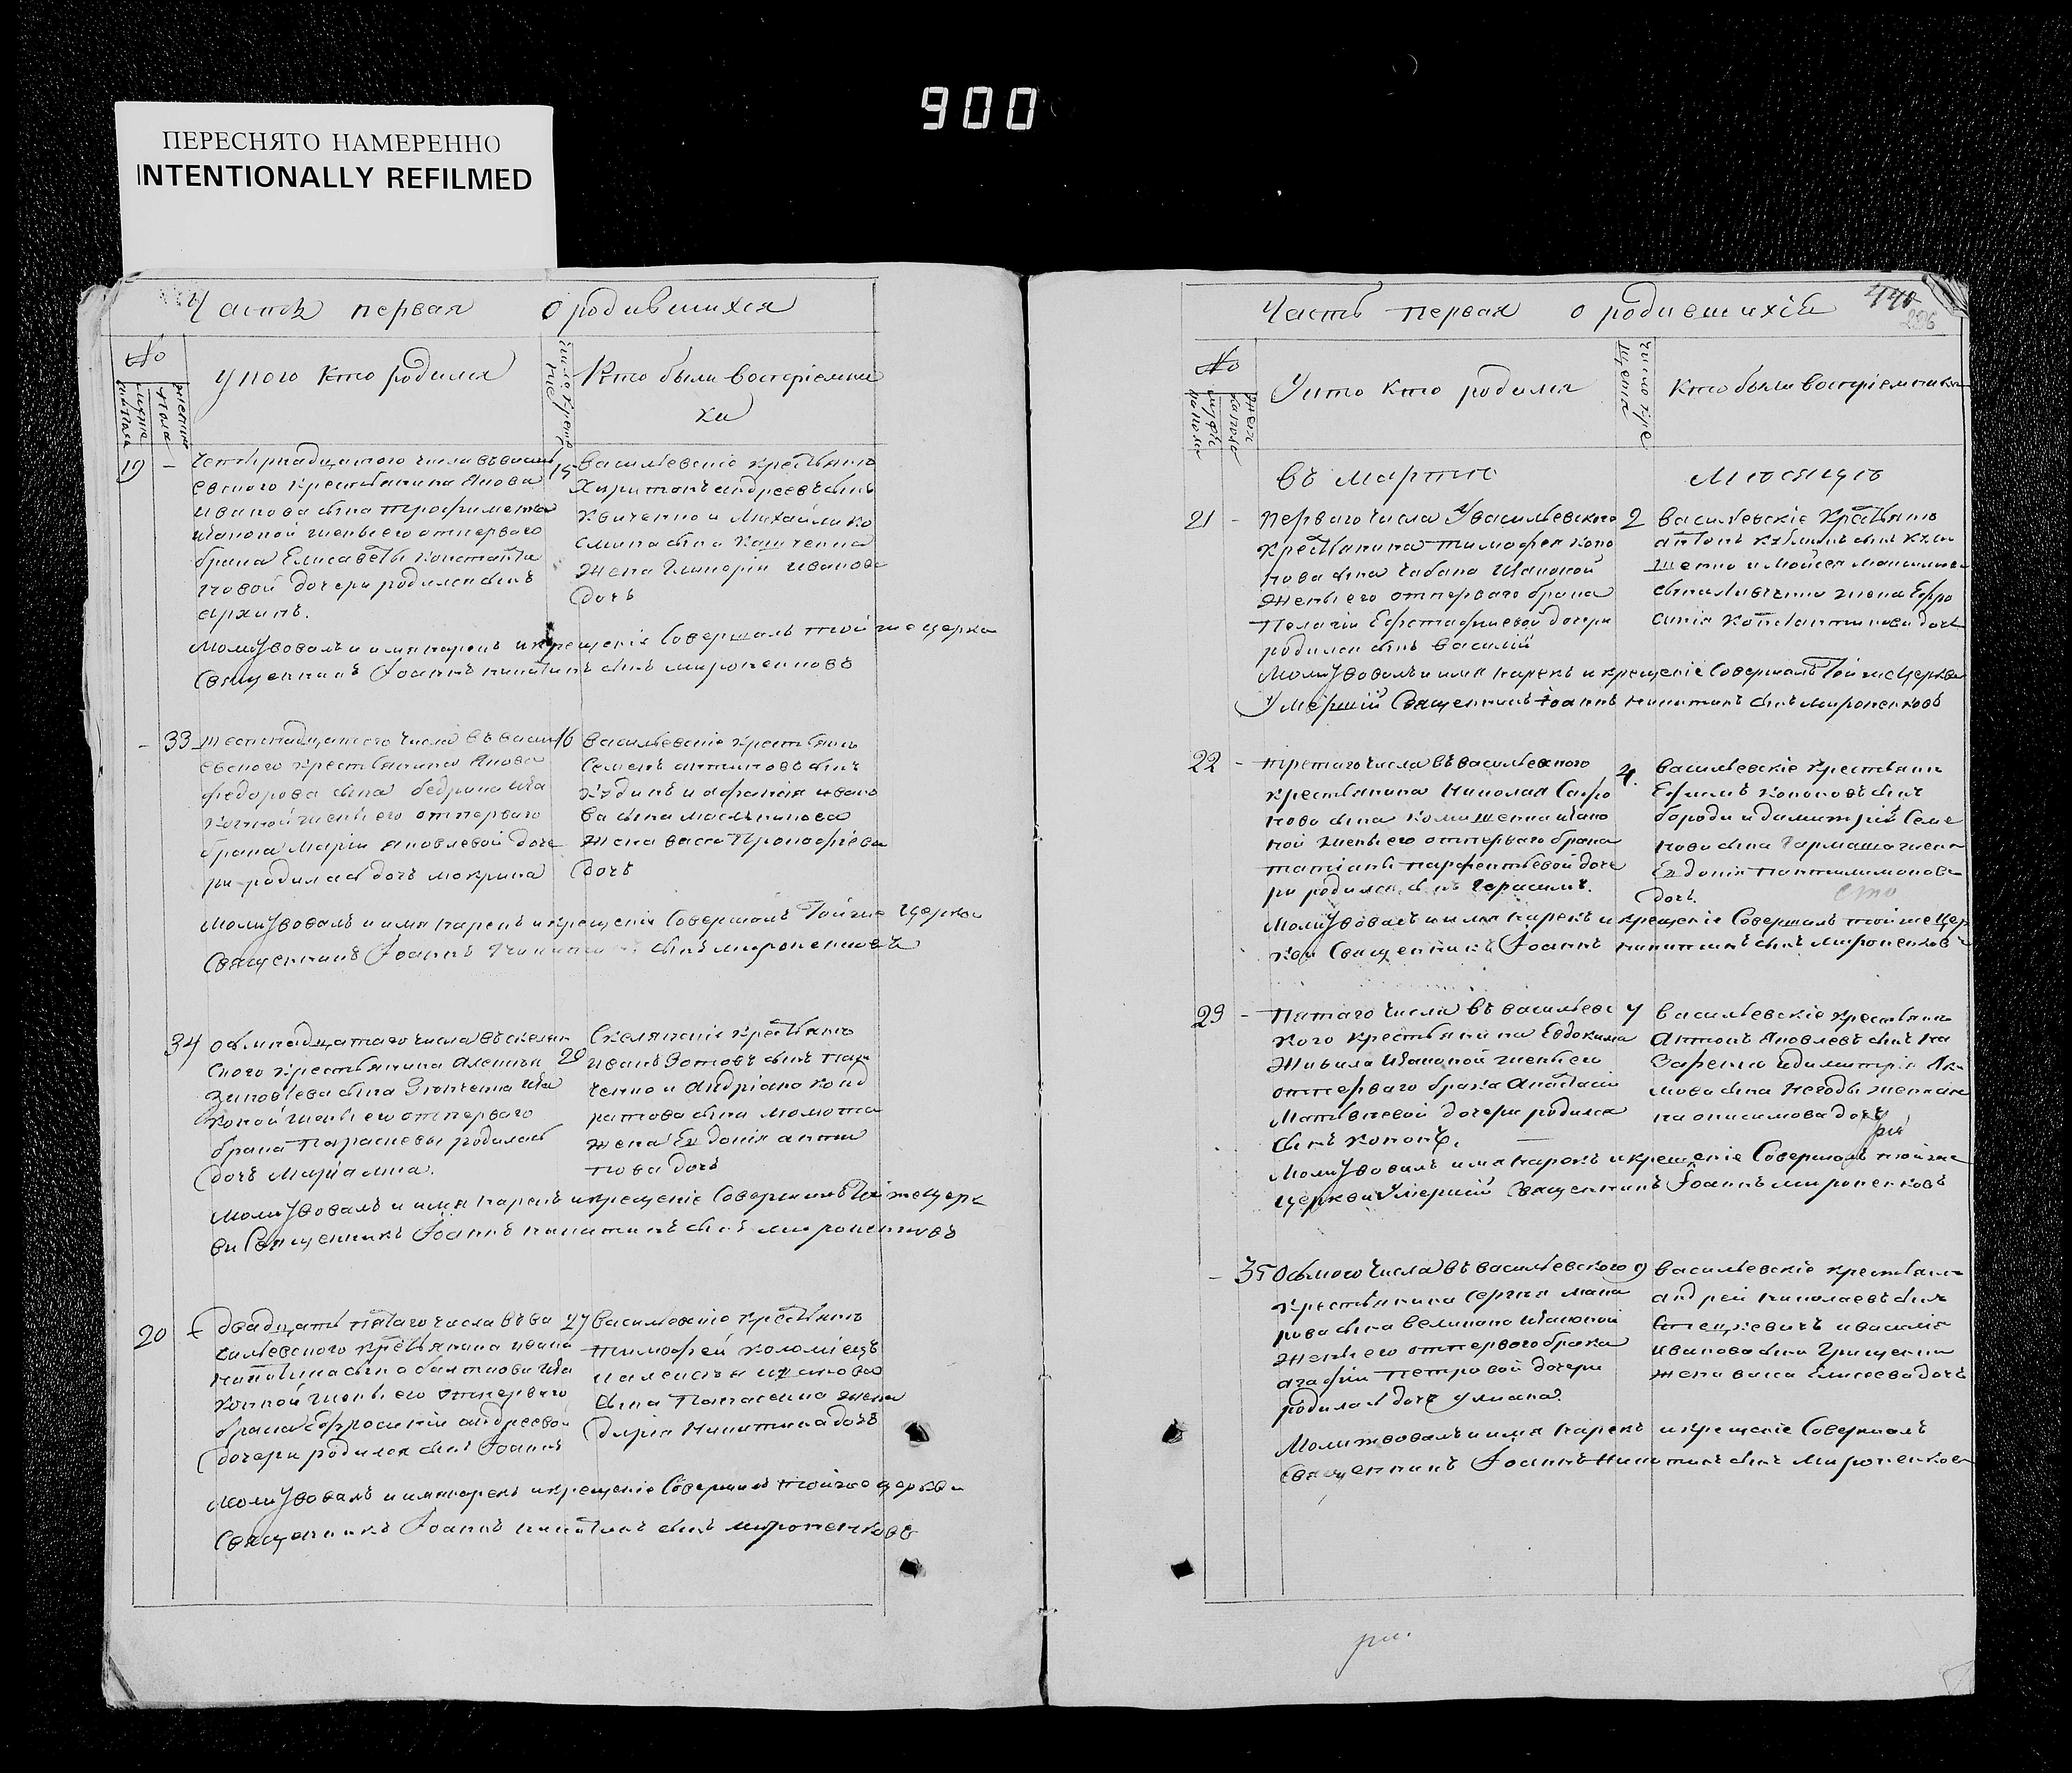 900
ПЕРЕСНЯТО НАМЕРЕННО
INTENTIONALLY REFILMED
Часть первая о родившихся
№
у кого кто родился
Кто были восприемни
ки
19 - Четырнадцатого числа въ Василь
евского крестьянина Якова
Иванова сына Трофименка
законной жены его отпервого
брака Елисаветы Константи
новой дочери родился сынъ
Архипъ.
15 Васильевскіе крестьяне
Харитонъ Андреевъ сынъ
Квиченко и Михайли Ко
смина сына
жена Гликерія Иванова
дочь
Молитвовалъ и имя нарекъ и крещеніе совершалъ той же церкви
Священникъ Іоаннъ Никитинъ сынъ Мироненковъ
- 33 шеснадцатого числа въ Васил
евского крестьянина Якова
Федорова сына Бедрика за
конной жены его отпервого
брака Маріи Яковлевой доче
ри родилась дочь Макрина
16 Васильевскіе крестьяне
Семенъ Антиповъ сынъ
и Афанасія Ивано
ва сына Масльникова
жена Васса Прокофіева
дочь
Молитвовалъ и имя нарекъ и крещеніе совершалъ той же церкви
Священникъ Іоаннъ Никитинъ сынъ Мироненковъ
34 Осьмнадцатаго числа въ Скелян
ского крестьянина Алексія
Зиновіева сына Зинченка за
конной жены его отпервого
брака Параскевы родилась
дочь Маріамна.
20 Скелянскіе крестьяне
Иванъ Зотовъ сынъ
и Андріана Конд
ратова сына Момота
жена Евдокія Анти
пова дочь
Молитвовалъ и имя нарекъ и крещеніе совершалъ той же церк
ви Священникъ Іоаннъ Никитинъ сынъ Мироненковъ
20 - двадцать пятаго числа въ Ва
сильевского крестьянина Ивана
за
конной жены его отпервого
брака Ефросиніи Андреевой
дочери родился сынъ Іоаннъ
27 Васильевскіе крестьяне
Тимофей Коломіецъ
и Алексія
сына Панасенка жена
Дарія Никитина дочь
Молитвовалъ и имя нарекъ и крещеніе совершалъ той же церкви
Священникъ Іоаннъ Никитинъ сынъ Мироненковъ
Часть первая о родившихся
440
№
У кого кто родился
Кто были восприемники
въ марте месяце
21 - перваго числа У васильевского
крестьянина Тимофея Коно
нова сына Чабана законной
жены его отперваго брака
Пелагіи Евстафиевой дочери
родился сынъ Василій
2 Васильевскіе крестьяне
Антонъ сынъ
и Мойсея Максимова
сына жена Ефро
синія Константинова дочь
Молитвовалъ и имя нарекъ и крещеніе совершалъ той же церкви
Умершій Священникъ Іоаннъ Никитинъ сынъ Мироненковъ
22 - третаго числа въ васильевского
крестьянина Николая Сафо
нова сына закон
ной жены его отперваго брака
Татіаны Парфентьевой доче
ри родился сынъ Герасимъ.
4. Васильевскіе крестьяне
Ефимъ Кононовъ сынъ
Борода и Димитрія Семе
нова сына Гармаша жена
Евдокія Пантилимонова
дочь.
Молитвовалъ и имя нарекъ и крещеніе совершалъ той же цер
кви Священникъ Іоаннъ Никитинъ сынъ Мироненковъ
23 - Пятаго числа въ васильевс
кого крестьянина Евдокима
Живила законной жены его
отперваго брака Анастасіи
Матвіевой дочери родился
сынъ Кононъ.
7 Васильевскіе крестьяне
Антонъ Яковлевъ сынъ На
заренко и Димитрія Яки
мова сына Негоды жена
Онисимова дочь
Молитвовалъ имя нарекъ и крещеніе совершалъ той же
церкви Умершій Священникъ Іоаннъ Мироненковъ
- 35 Осьмого числа въ васильевского
крестьянина Сергія Мака
рова сына Великана законной
жены его отперваго брака
Агафіи Петровой дочери
родилась дочь Уліана.
9 Васильевскіе крестьяне
Андрей Николаевъ сынъ
и Василія
Иванова сына Грищенка
жена Васса Елисеева дочь
Молитвовалъ и имя нарекъ и крещеніе совершалъ
Священникъ Іоаннъ Никитинъ сынъ Мироненковъ